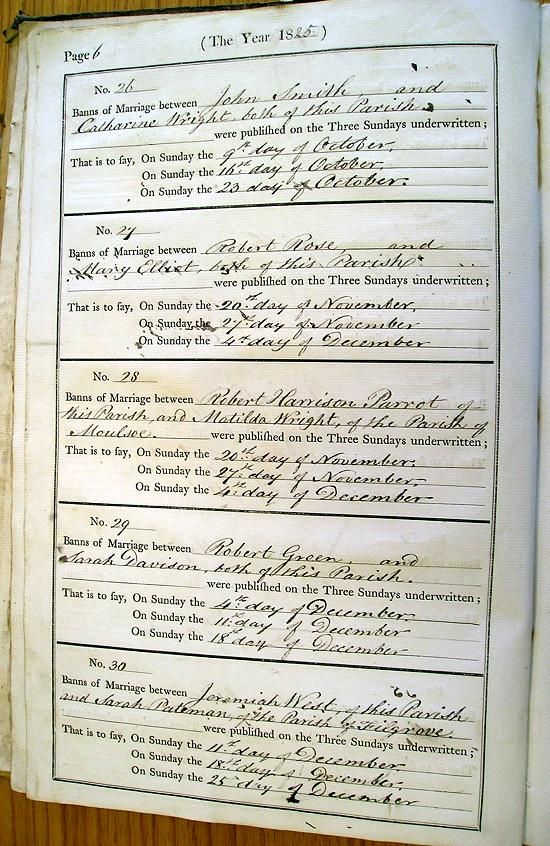 Page 6
(The Year 1825)
No. 26
Banns of Marriage between John Smith, and
Catharine Wright, both of this Parish.
were publiſhed on the Three Sundays underwritten;
That is to ſay, On Sunday the 9th day of October,
On Sunday the 16th day of October,
On Sunday the 23 day of October.
No. 27
Banns of Marriage between Robert Rose, and
Mary Elliot, both of this Parish
were publiſhed on the Three Sundays underwritten;
That is to ſay, On Sunday the 20th day of November,
On Sunday the 27th day of November
On Sunday the 4th day of December
No. 28
Banns of Marriage between Robert Harrison Parrot of
this Parish, and Matilda Wright, of the Parish of
Moulsoe. were publiſhed on the Three Sundays underwritten;
That is to ſay, On Sunday the 20th day of November,
On Sunday the 27th day of November,
On Sunday the 4th day of December
No. 29
Banns of Marriage between Robert Green, and
Sarah Davison, both of this Parish.
were publiſhed on the Three Sundays underwritten;
That is to ſay, On Sunday the 4th day of December.
On Sunday the 11th day of December
On Sunday the 18th day of December
No. 30
Banns of Marriage between Jeremiah West, of this Parish
and Sarah Pateman, of the Parish of Filgrove
were publiſhed on the Three Sundays underwritten;
That is to ſay, On Sunday the 11th day of December
On Sunday the 18th day of December,
On Sunday the 25 day of December